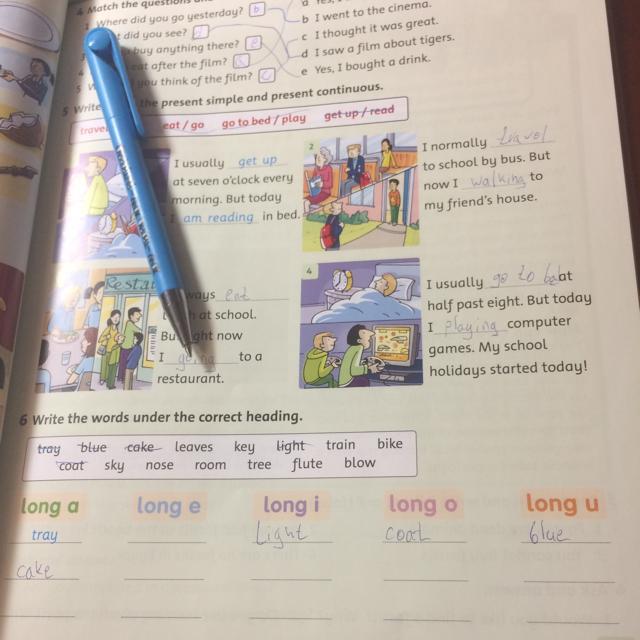 4 Match the questions an
1 Where did you go yesterday? b
t did you see?
buy anything there? e
4 eat after the film?
5 you think of the film? c
a
b I went to the cinema.
c I thought it was great.
d I saw a film about tigers.
e Yes, I bought a drink.
5 Write the present simple and present continuous.
travel eat / go go to bed / play get up / read
I usually get up
at seven o'clock every
morning. But today
I am reading in bed.
2
I normally travel
to school by bus. But
now I walking to
my friend's house.
Resta
ways eat
at school.
But ght now
I going to a
restaurant.
4
I usually go to bed at
half past eight. But today
I playing computer
games. My school
holidays started today!
6 Write the words under the correct heading.
tray blue cake leaves key light train bike
coat sky nose room tree flute blow
long a long e long i long o long u
tray Light coat blue
cake